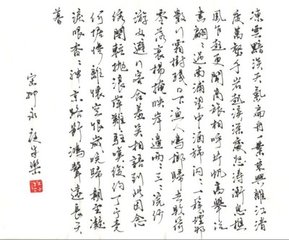 凍雲黯淡天氣扁舟一葉乘興離江渚
度萬壑千岩越溪深處怒濤漸息樵
風乍起更聞商旅相呼片帆高舉泛
畫鷁翩翩過南浦望中酒旆閃閃一簇煙邨
數行霜樹殘日下漁人鳴榔歸去敗荷
零落衰楊掩映岸邊兩兩三三浣紗
游女避行客含羞笑相語到此因念
綉閣輕拋浪萍難駐嘆後約丁寧竟
何據慘離懷空恨歲晚歸期阻凝
淚眼杳杳神京路斷鴻聲遠長天
暮
宋柳永夜半樂